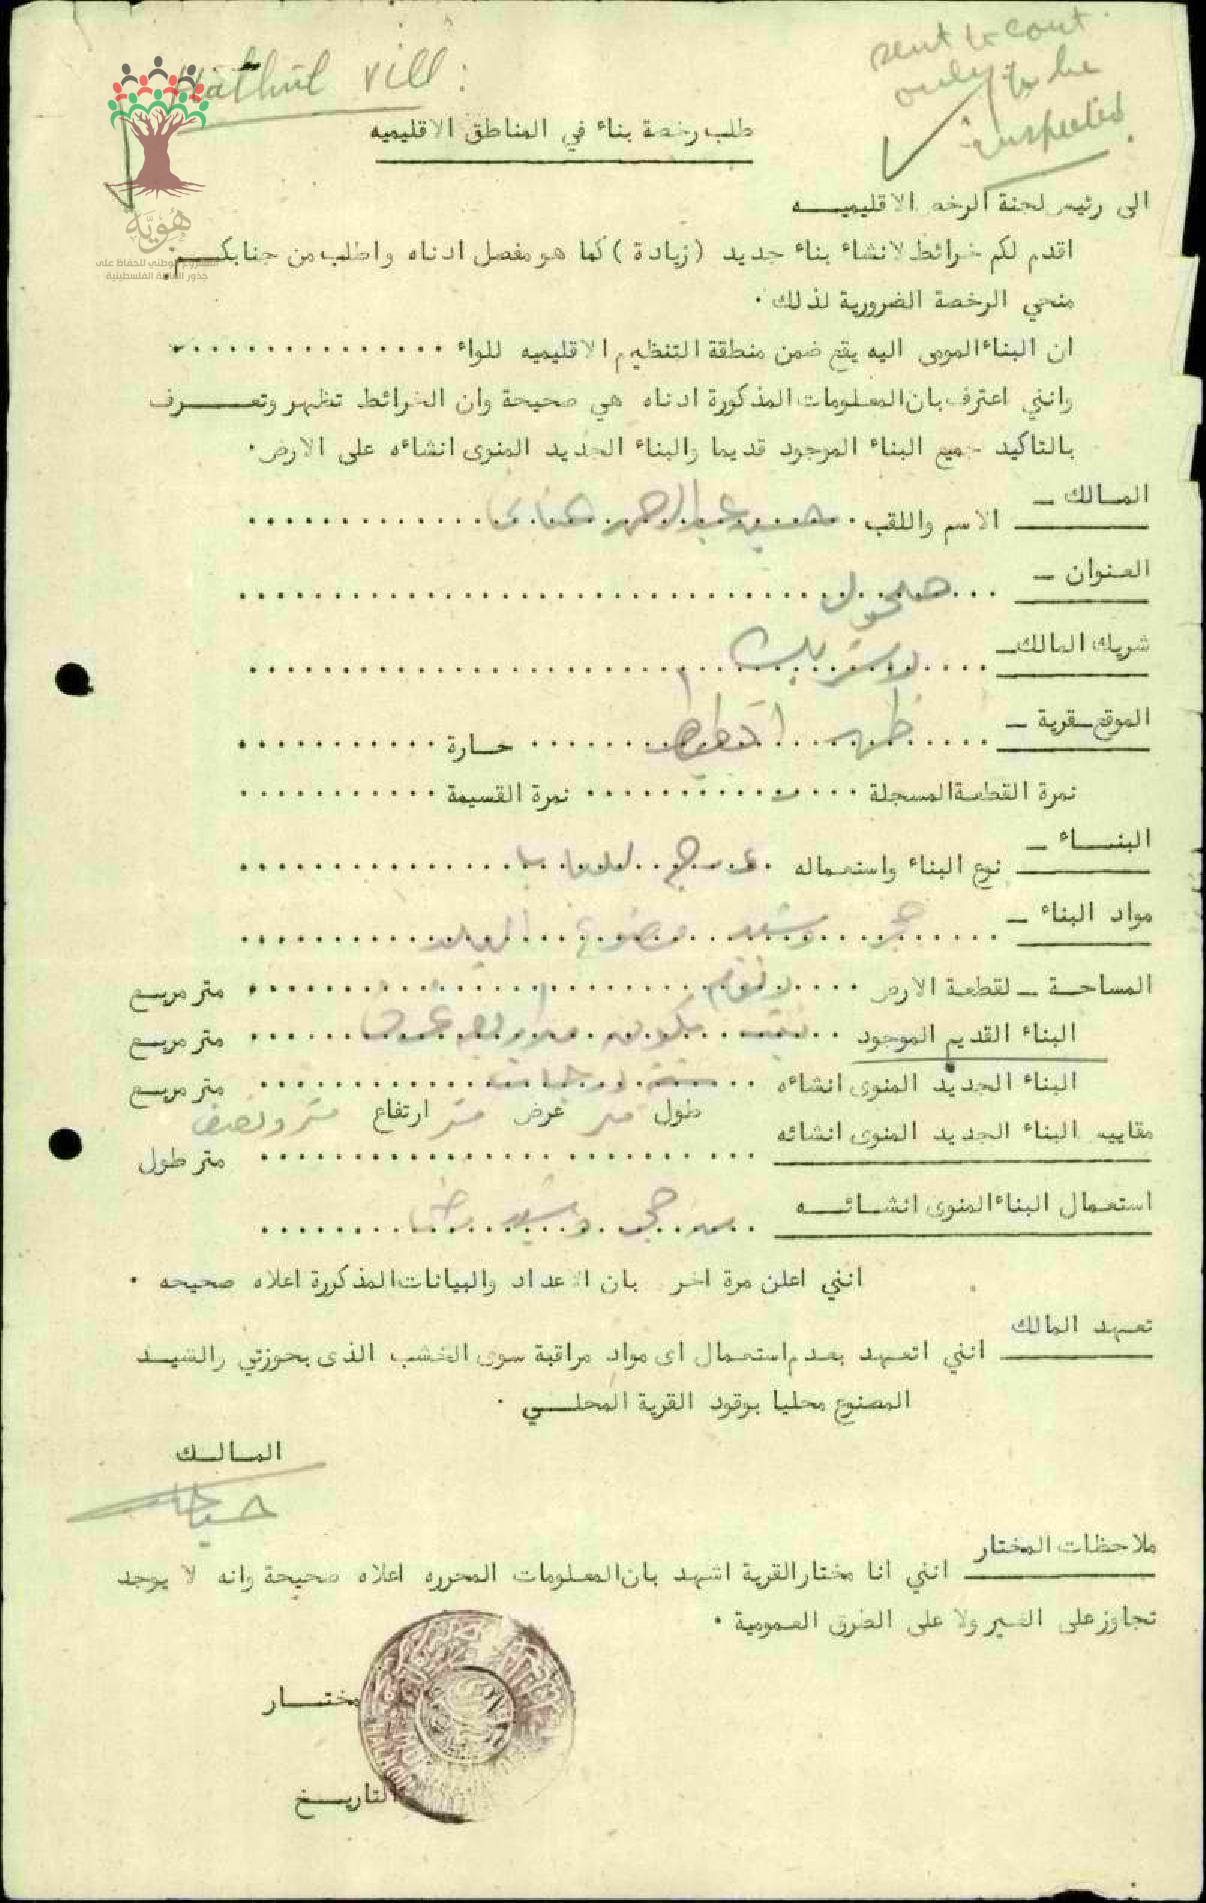 vill:
sent to court
only to be
inspected.
هُوِيَّة
المشروع الوطني للحفاظ على
جذور العائلة الفلسطينية
طلب رخصة بناء في المناطق الاقليميه
الى رئيس لجنة الرخص الاقليميه
اقدم لكم خرائط لانشاء بناء جديد (زيادة) كما هو مفصل ادناه واطلب من جنابكم
منحي الرخصة الضرورية لذلك ٠
ان البناء المومى اليه يقع ضمن منطقة التنظيم الاقليميه للواء
وانني اعترف بان المعلومات المذكورة ادناه هي صحيحة وان الخرائط تظهر وتعرف
بالتاكيد جميع البناء الموجود قديما والبناء الجديد المنوى انشاءه على الارض ٠
المالك ـ
الاسم واللقب حسين عبد الرحمن
العنوان ـ حلحول
شريك المالك ـ
الموقع ـ قرية ـ ظهر حارة
نمرة القطعة المسجلة نمرة القسيمة
البناء ـ
نوع البناء واستعماله
مواد البناء ـ حجر وشيد مصنوع البلد
المساحة ـ لقطعة الارض متر مربع
البناء القديم الموجود مكون من اربع غرف متر مربع
البناء الجديد المنوى انشاءه ستة درجات متر مربع
طول متر عرض متر ارتفاع متر ونصف
مقاييه البناء الجديد المنوى انشائه متر طول
استعمال البناء المنوى انشائه من حجر وشيد
انني اعلن مرة اخر بان الاعداد والبيانات المذكررة اعلاه صحيحه ٠
تعهد المالك
انني اتعهد بعدم استعمال اى مواد مراقبة سوى الخشب الذى بحوزتي والشيد
المصنوع محليا بوقود القرية المحلي ٠
المالك
ملاحظات المختار
انني انا مختار القرية اشهد بان المعلومات المحرره اعلاه صحيحة وانه لا يوجد
تجاوز على الغير ولا على الطرق العمومية ٠
مختار
التاريخ